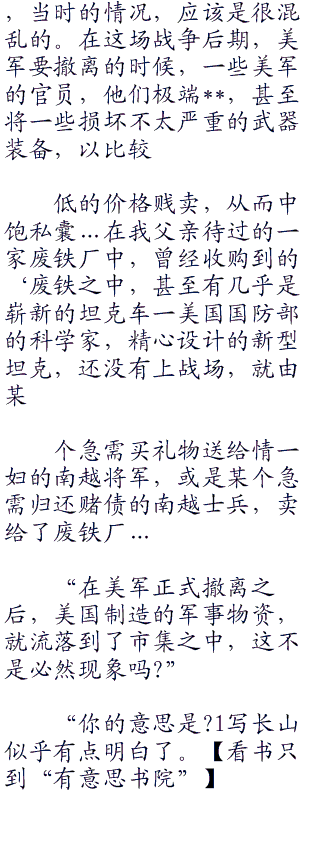 ，当时的情况，应该是很混
乱的。在这场战争后期，美
军要撤离的时候，一些美军
的官员，他们极端**，甚至
将一些损坏不太严重的武器
装备，以比较
低的价格贱卖，从而中
饱私囊…在我父亲待过的一
家废铁厂中，曾经收购到的
‘废铁之中，甚至有几乎是
崭新的坦克车一美国国防部
的科学家，精心设计的新型
坦克，还没有上战场，就由
某
个急需买礼物送给情一
妇的南越将军，或是某个急
需归还赌债的南越士兵，卖
给了废铁厂…
“在美军正式撤离之
后，美国制造的军事物资，
就流落到了市集之中，这不
是必然现象吗?”
“你的意思是?1写长山
似乎有点明白了。【看书只
到“有意思书院”】